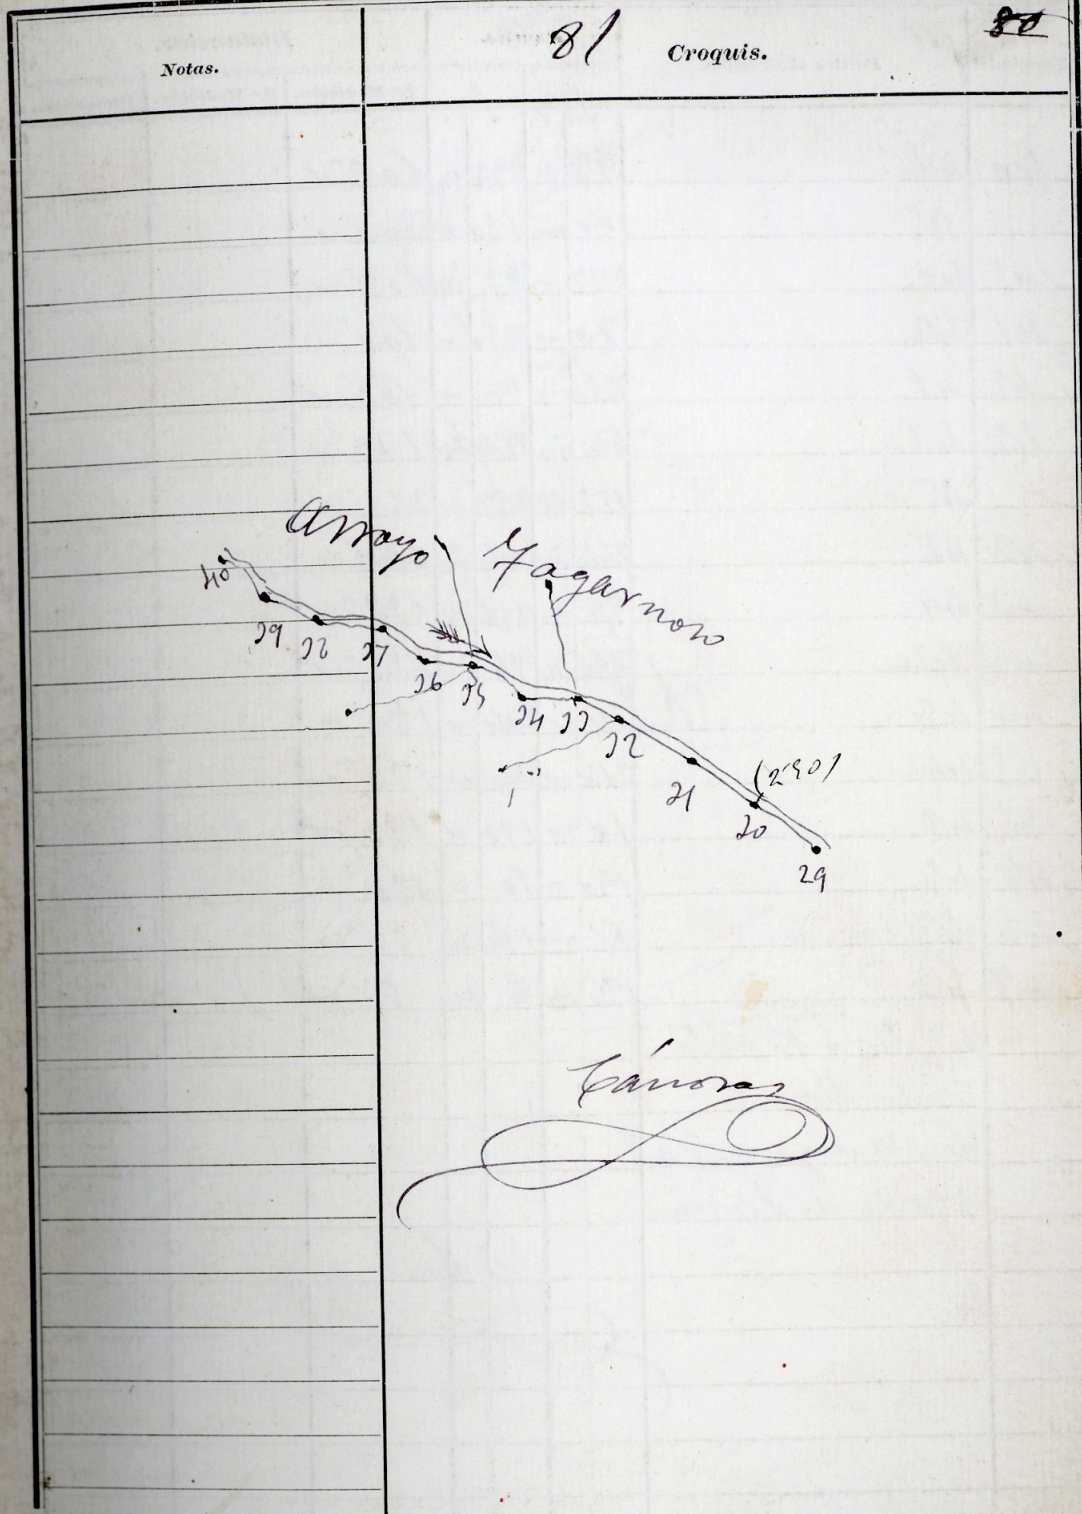 Notas.
81
Croquis.
80
Arroyo Zagarnoso
40
39
38
37
36
35
34
33
32
31
30
(2º90)
29
Cánovas